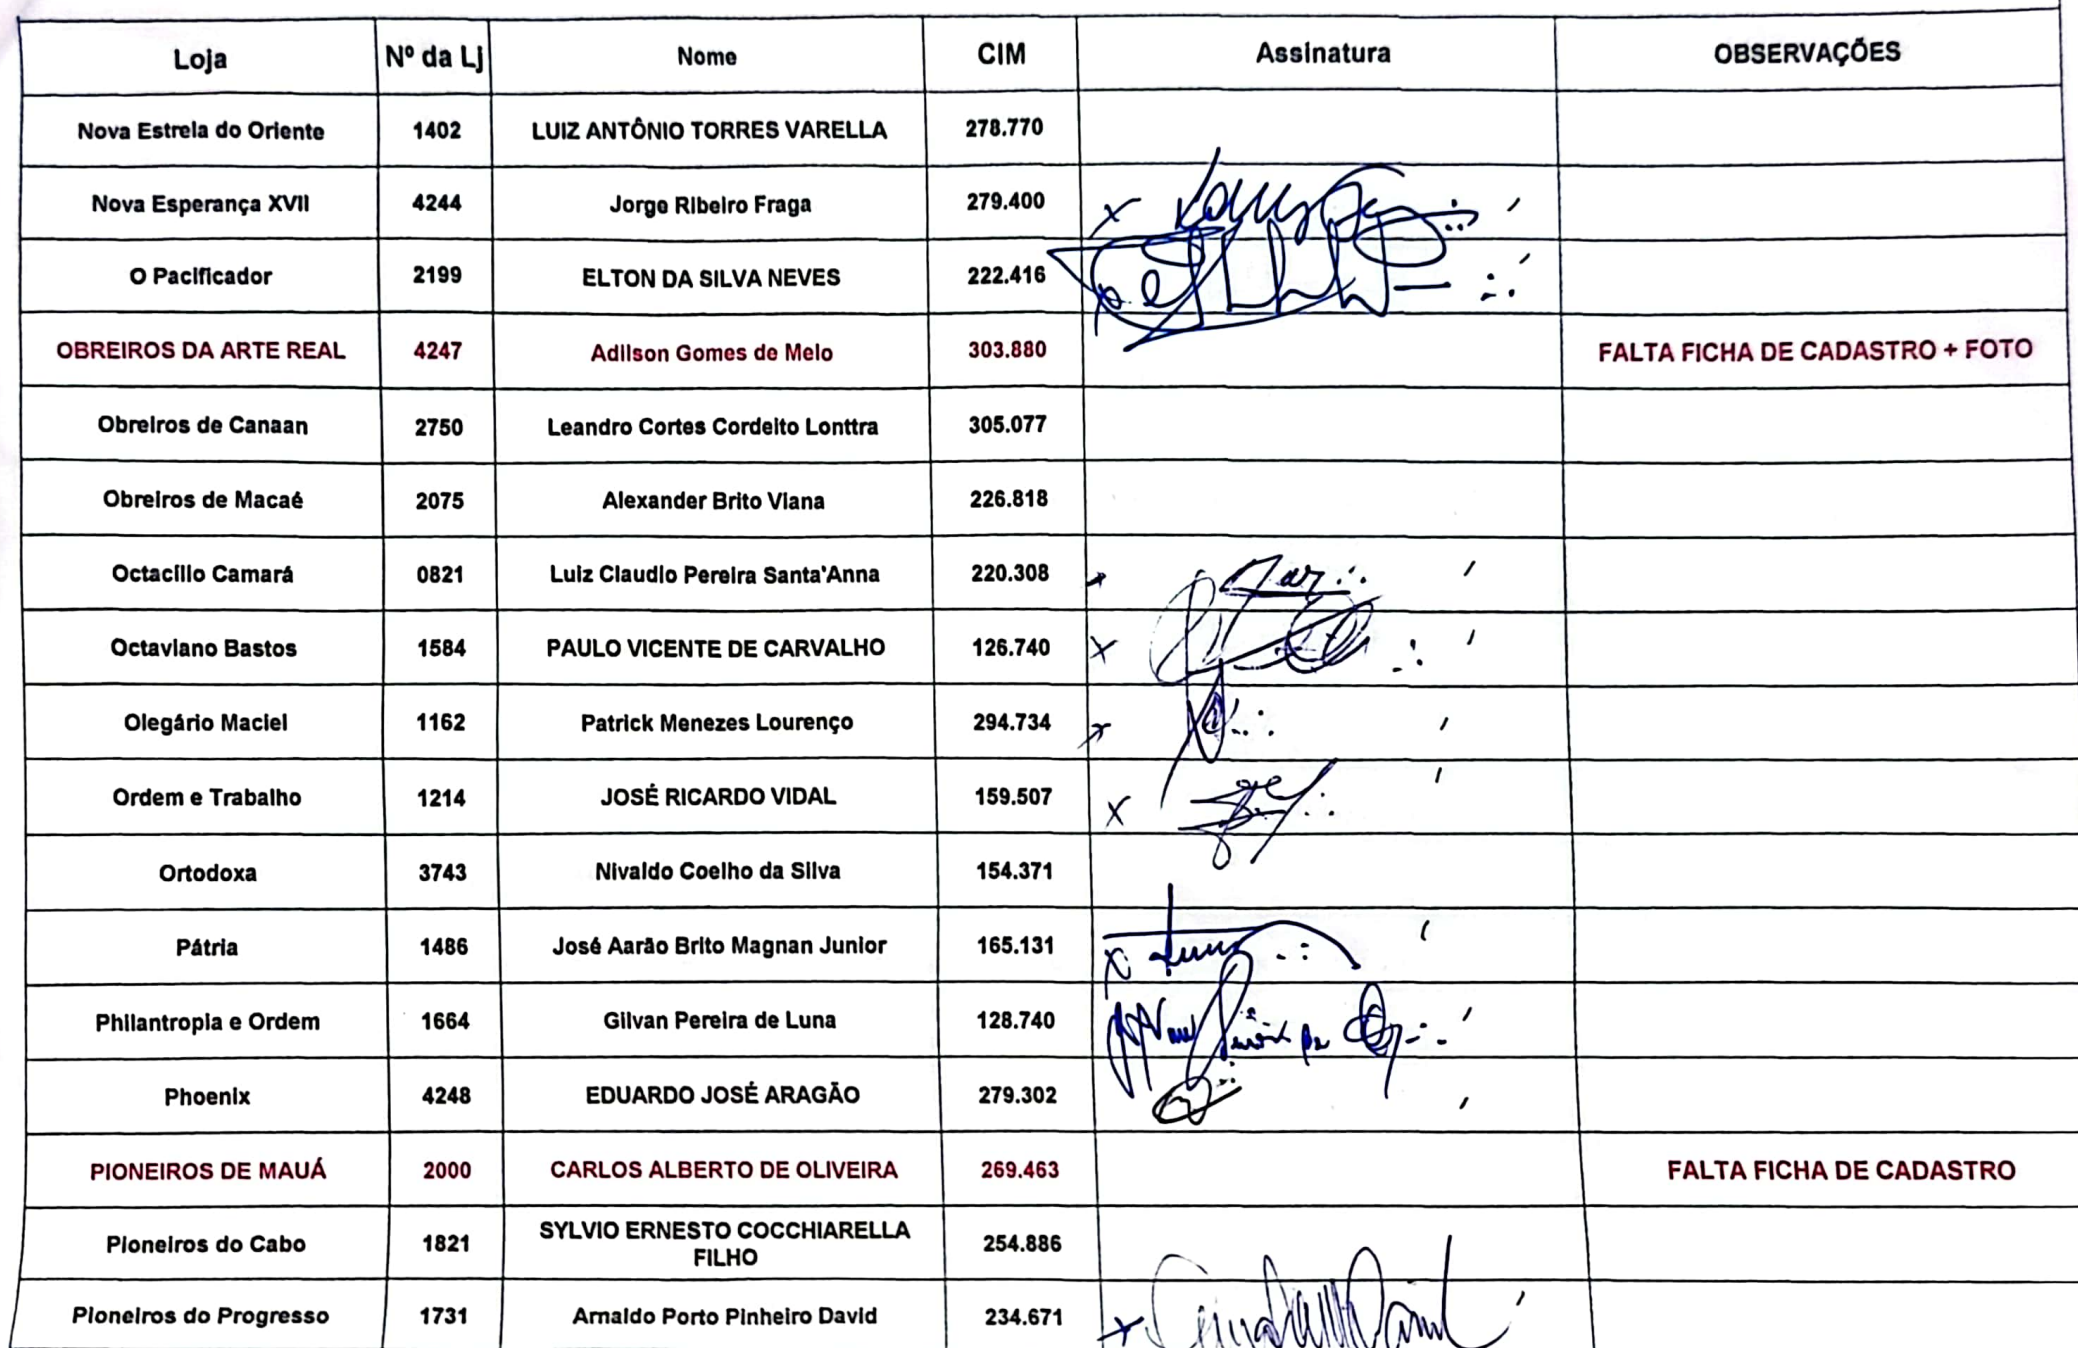 Loja Nº da Lj Nome CIM Assinatura OBSERVAÇÕES
Nova Estrela do Oriente 1402 LUIZ ANTÔNIO TORRES VARELLA 278.770
Nova Esperança XVII 4244 Jorge Ribeiro Fraga 279.400
O Pacificador 2199 ELTON DA SILVA NEVES 222.416
OBREIROS DA ARTE REAL 4247 Adilson Gomes de Melo 303.880 FALTA FICHA DE CADASTRO + FOTO
Obreiros de Canaan 2750 Leandro Cortes Cordeito Lonttra 305.077
Obreiros de Macaé 2075 Alexander Brito Viana 226.818
Octacilio Camará 0821 Luiz Claudio Pereira Santa'Anna 220.308
Octaviano Bastos 1584 PAULO VICENTE DE CARVALHO 126.740
Olegário Maciel 1162 Patrick Menezes Lourenço 294.734
Ordem e Trabalho 1214 JOSÉ RICARDO VIDAL 159.507
Ortodoxa 3743 Nivaldo Coelho da Silva 154.371
Pátria 1486 José Aarão Brito Magnan Junior 165.131
Philantropia e Ordem 1664 Gilvan Pereira de Luna 128.740
Phoenix 4248 EDUARDO JOSÉ ARAGÃO 279.302
PIONEIROS DE MAUÁ 2000 CARLOS ALBERTO DE OLIVEIRA 269.463 FALTA FICHA DE CADASTRO
Pioneiros do Cabo 1821 SYLVIO ERNESTO COCCHIARELLA 254.886
FILHO
Pioneiros do Progresso 1731 Arnaldo Porto Pinheiro David 234.671